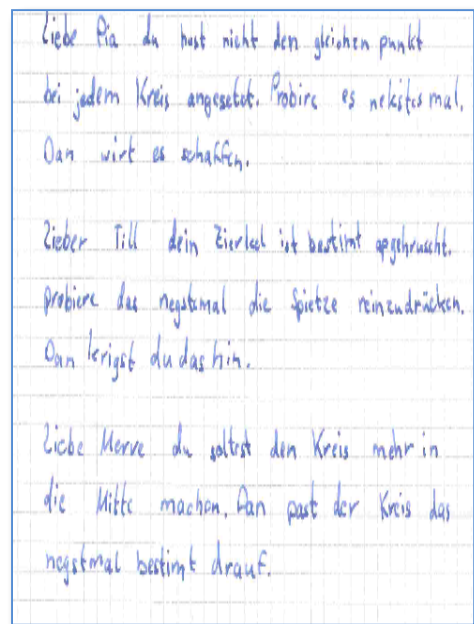 Liebe Pia du hast nicht den gleichen punkt
bei jedem Kreis angesetzt. Probire es nekstes mal.
Dan wirt es schaffen.
Lieber Till dein Zierkel ist bestimt apgehruscht.
probiere das negstemal die Spietze reinzudrücken.
Dan krigst du das hin.
Liebe Merve du soltest den Kreis mehr in
die Mitte machen. Dan past der Kreis das
negstmal bestimt drauf.